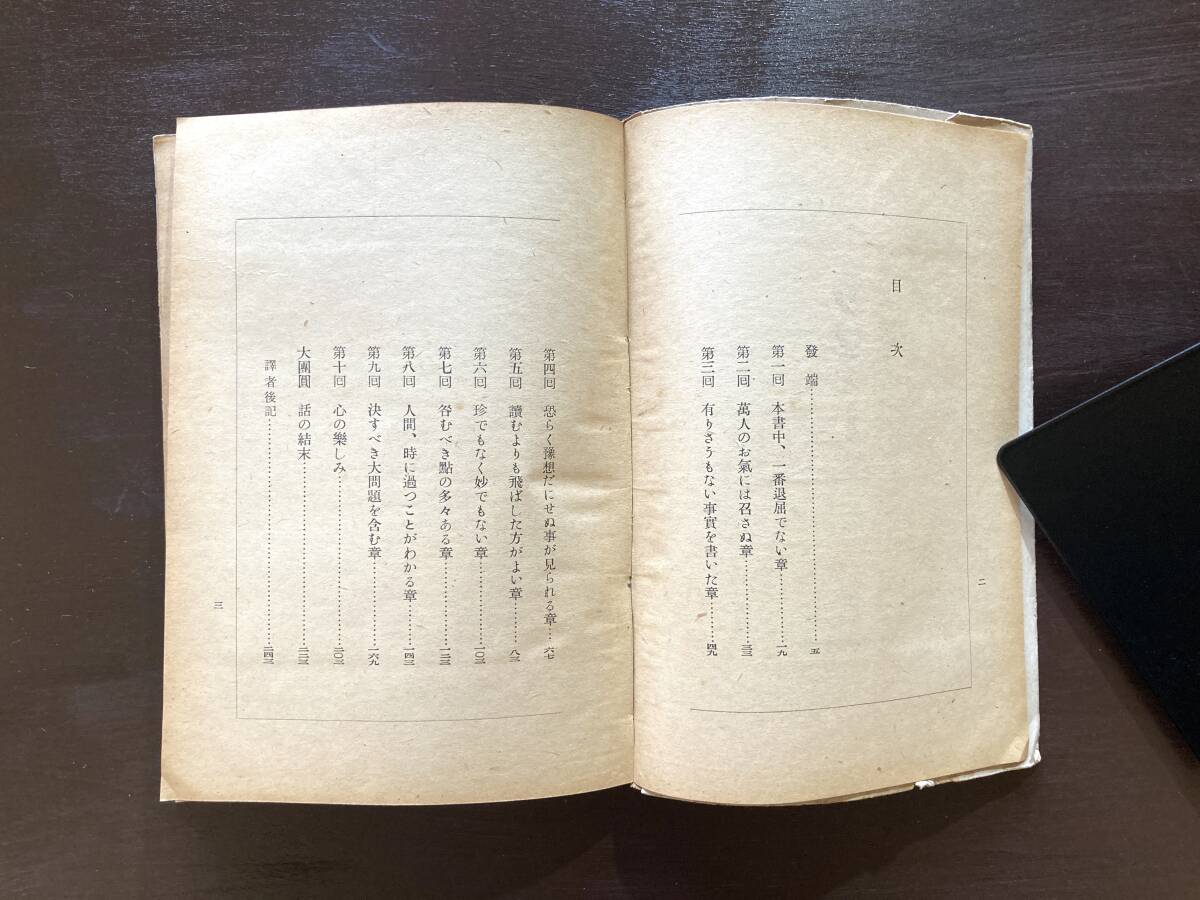 二
目次
發端……五
第一囘 本書中、一番退屈でない章……一九
第二囘 萬人のお氣には召さぬ章……三三
第三囘 有りさうもない事實を書いた章……四九
第四囘 恐らく豫想だにせぬ事が見られる章……六七
第五囘 讀むよりも飛ばした方がよい章……八三
第六囘 珍でもなく妙でもない章……一〇三
第七囘 咎むべき點の多々ある章……一二三
第八囘 人間、時に過つことがわかる章……一四三
第九囘 決すべき大問題を含む章……一六九
第十囘 心の樂しみ……二〇三
大團圓 話の結末……二二三
譯者後記……二四三
三